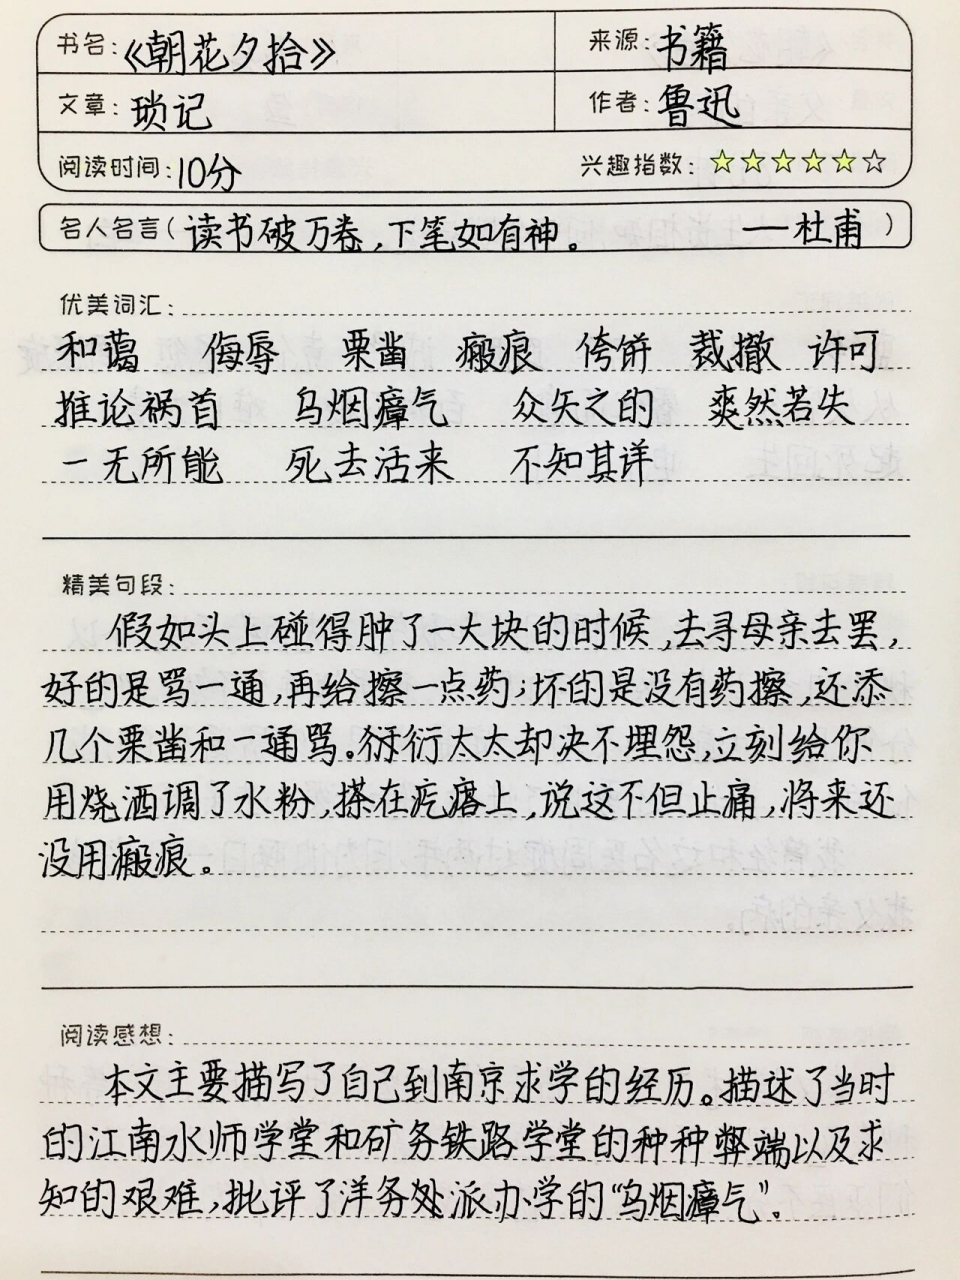 书名:《朝花夕拾》 来源:书籍
文章:琐记 作者:鲁迅
阅读时间:10分 兴趣指数:★★★★★☆
名人名言(读书破万卷、下笔如有神。 ——杜甫)
优美词汇:
和蔼 侮辱 栗凿 瘢痕 侉饼 裁撤 许可
推论祸首 乌烟瘴气 众矢之的 爽然若失
一无所能 死去活来 不知其详
精美句段:
假如头上碰得肿了一大块的时候,去寻母亲去罢,
好的是骂一通,再给擦一点药;坏的是没有药擦,还添
几个栗凿和一通骂。衍衍太太却决不埋怨,立刻给你
用烧酒调了水粉,搽在疙瘩上,说这不但止痛,将来还
没用瘢痕。
阅读感想:
本文主要描写了自己到南京求学的经历。描述了当时
的江南水师学堂和矿务铁路学堂的种种弊端以及求
知的艰难,批评了洋务处派办学的“乌烟瘴气”.